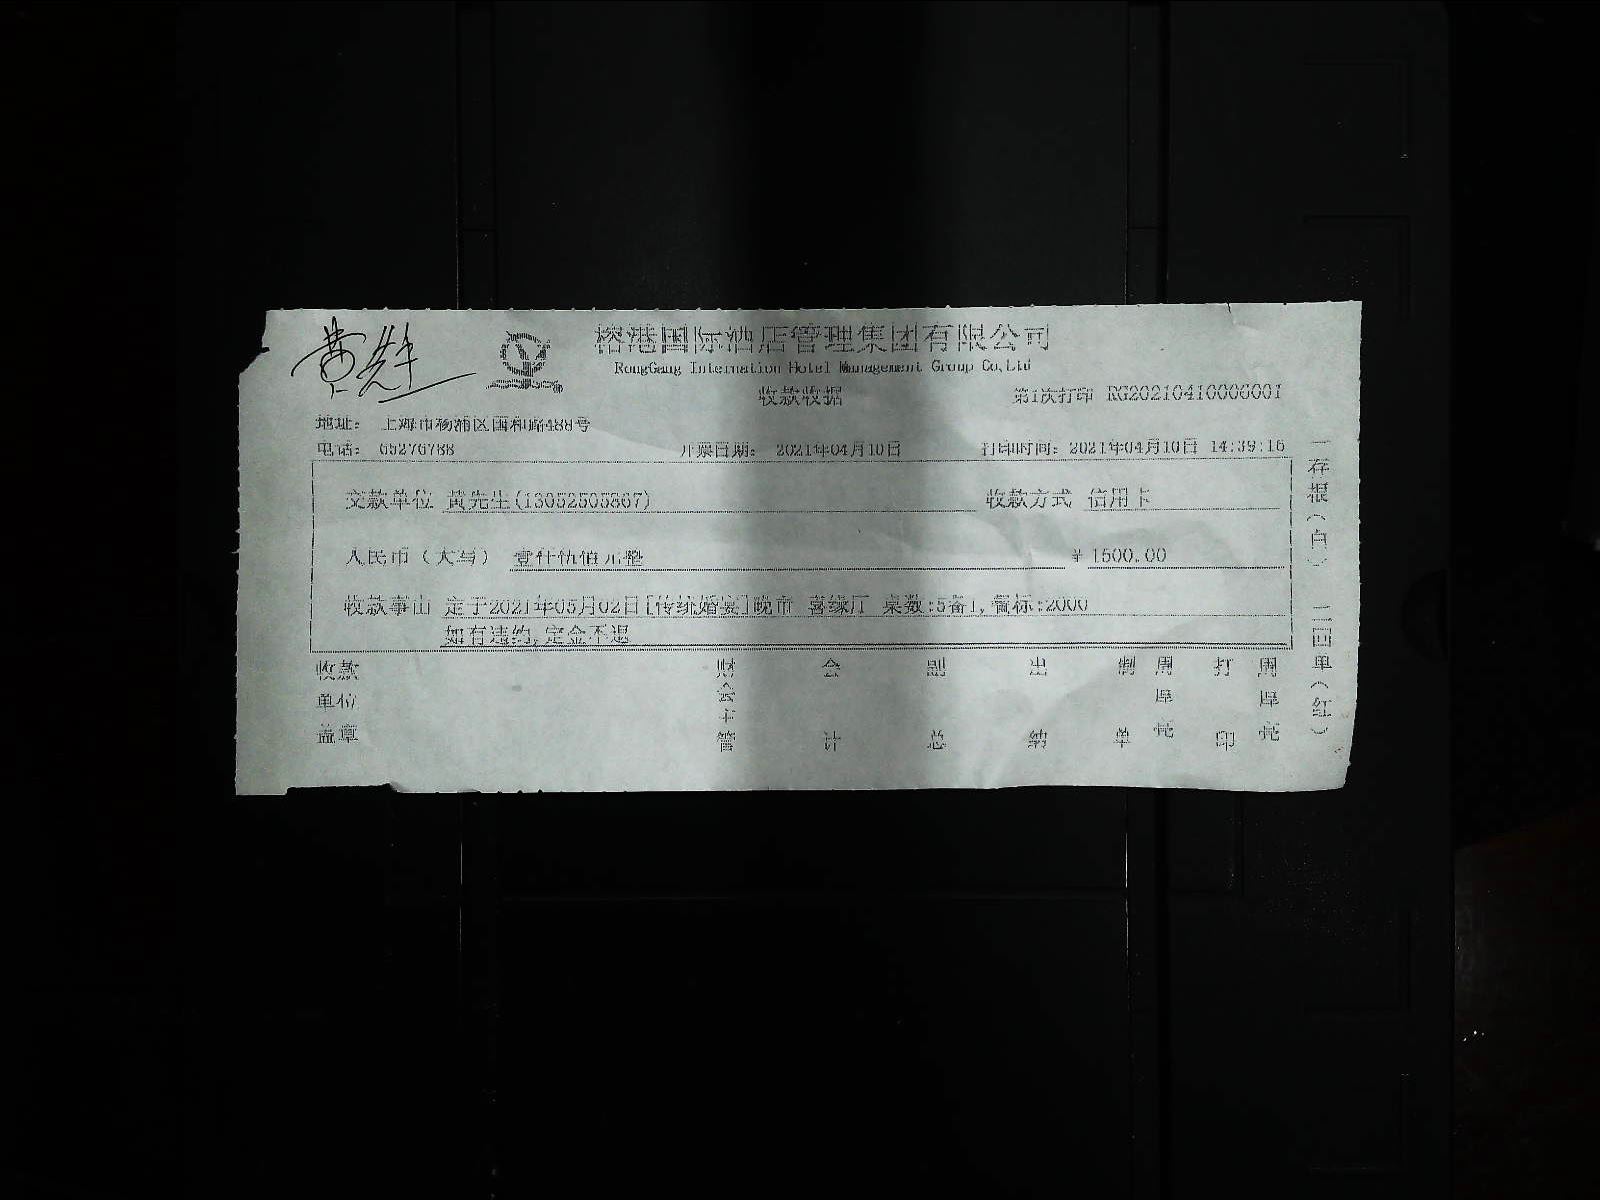 黄先生
榕港国际酒店管理集团有限公司
RongGang Internation Hotel Management Group Co,Ltd
收款收据
第1次打印 RG20210410006001
地址： 上海市杨浦区国和路488号
电话： 65276788 开票日期： 2021年04月10日 打印时间：2021年04月10日 14:39:16
交款单位 黄先生(13052505867) 收款方式 信用卡
人民币（大写） 壹仟伍佰元整 ￥1500.00
收款事由 定于2021年05月02日[传统婚宴]晚市 喜缘厅 桌数:5备1,餐标:2000
如有违约,定金不退
收款单位盖章 财会主管 会计 副总 出纳 制单 周库亮 打印 周库亮
一存根（白） 二回单（红）